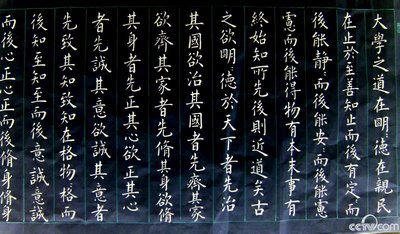 大學之道在明〻德在親民
在止於至善知止而後有定〻而
後能靜〻而後能安〻而後能慮
慮而後能得物有本末事有
終始知所先後則近道矣古
之欲明〻德於天下者先治
其國欲治其國者先齊其家
欲齊其家者先脩其身欲脩
其身者先正其心欲正其心
者先誠其意欲誠其意者
先致其知致知在格物〻格而
後知至知至而後意誠意誠
而後心正心正而後脩身脩身
cctv.com